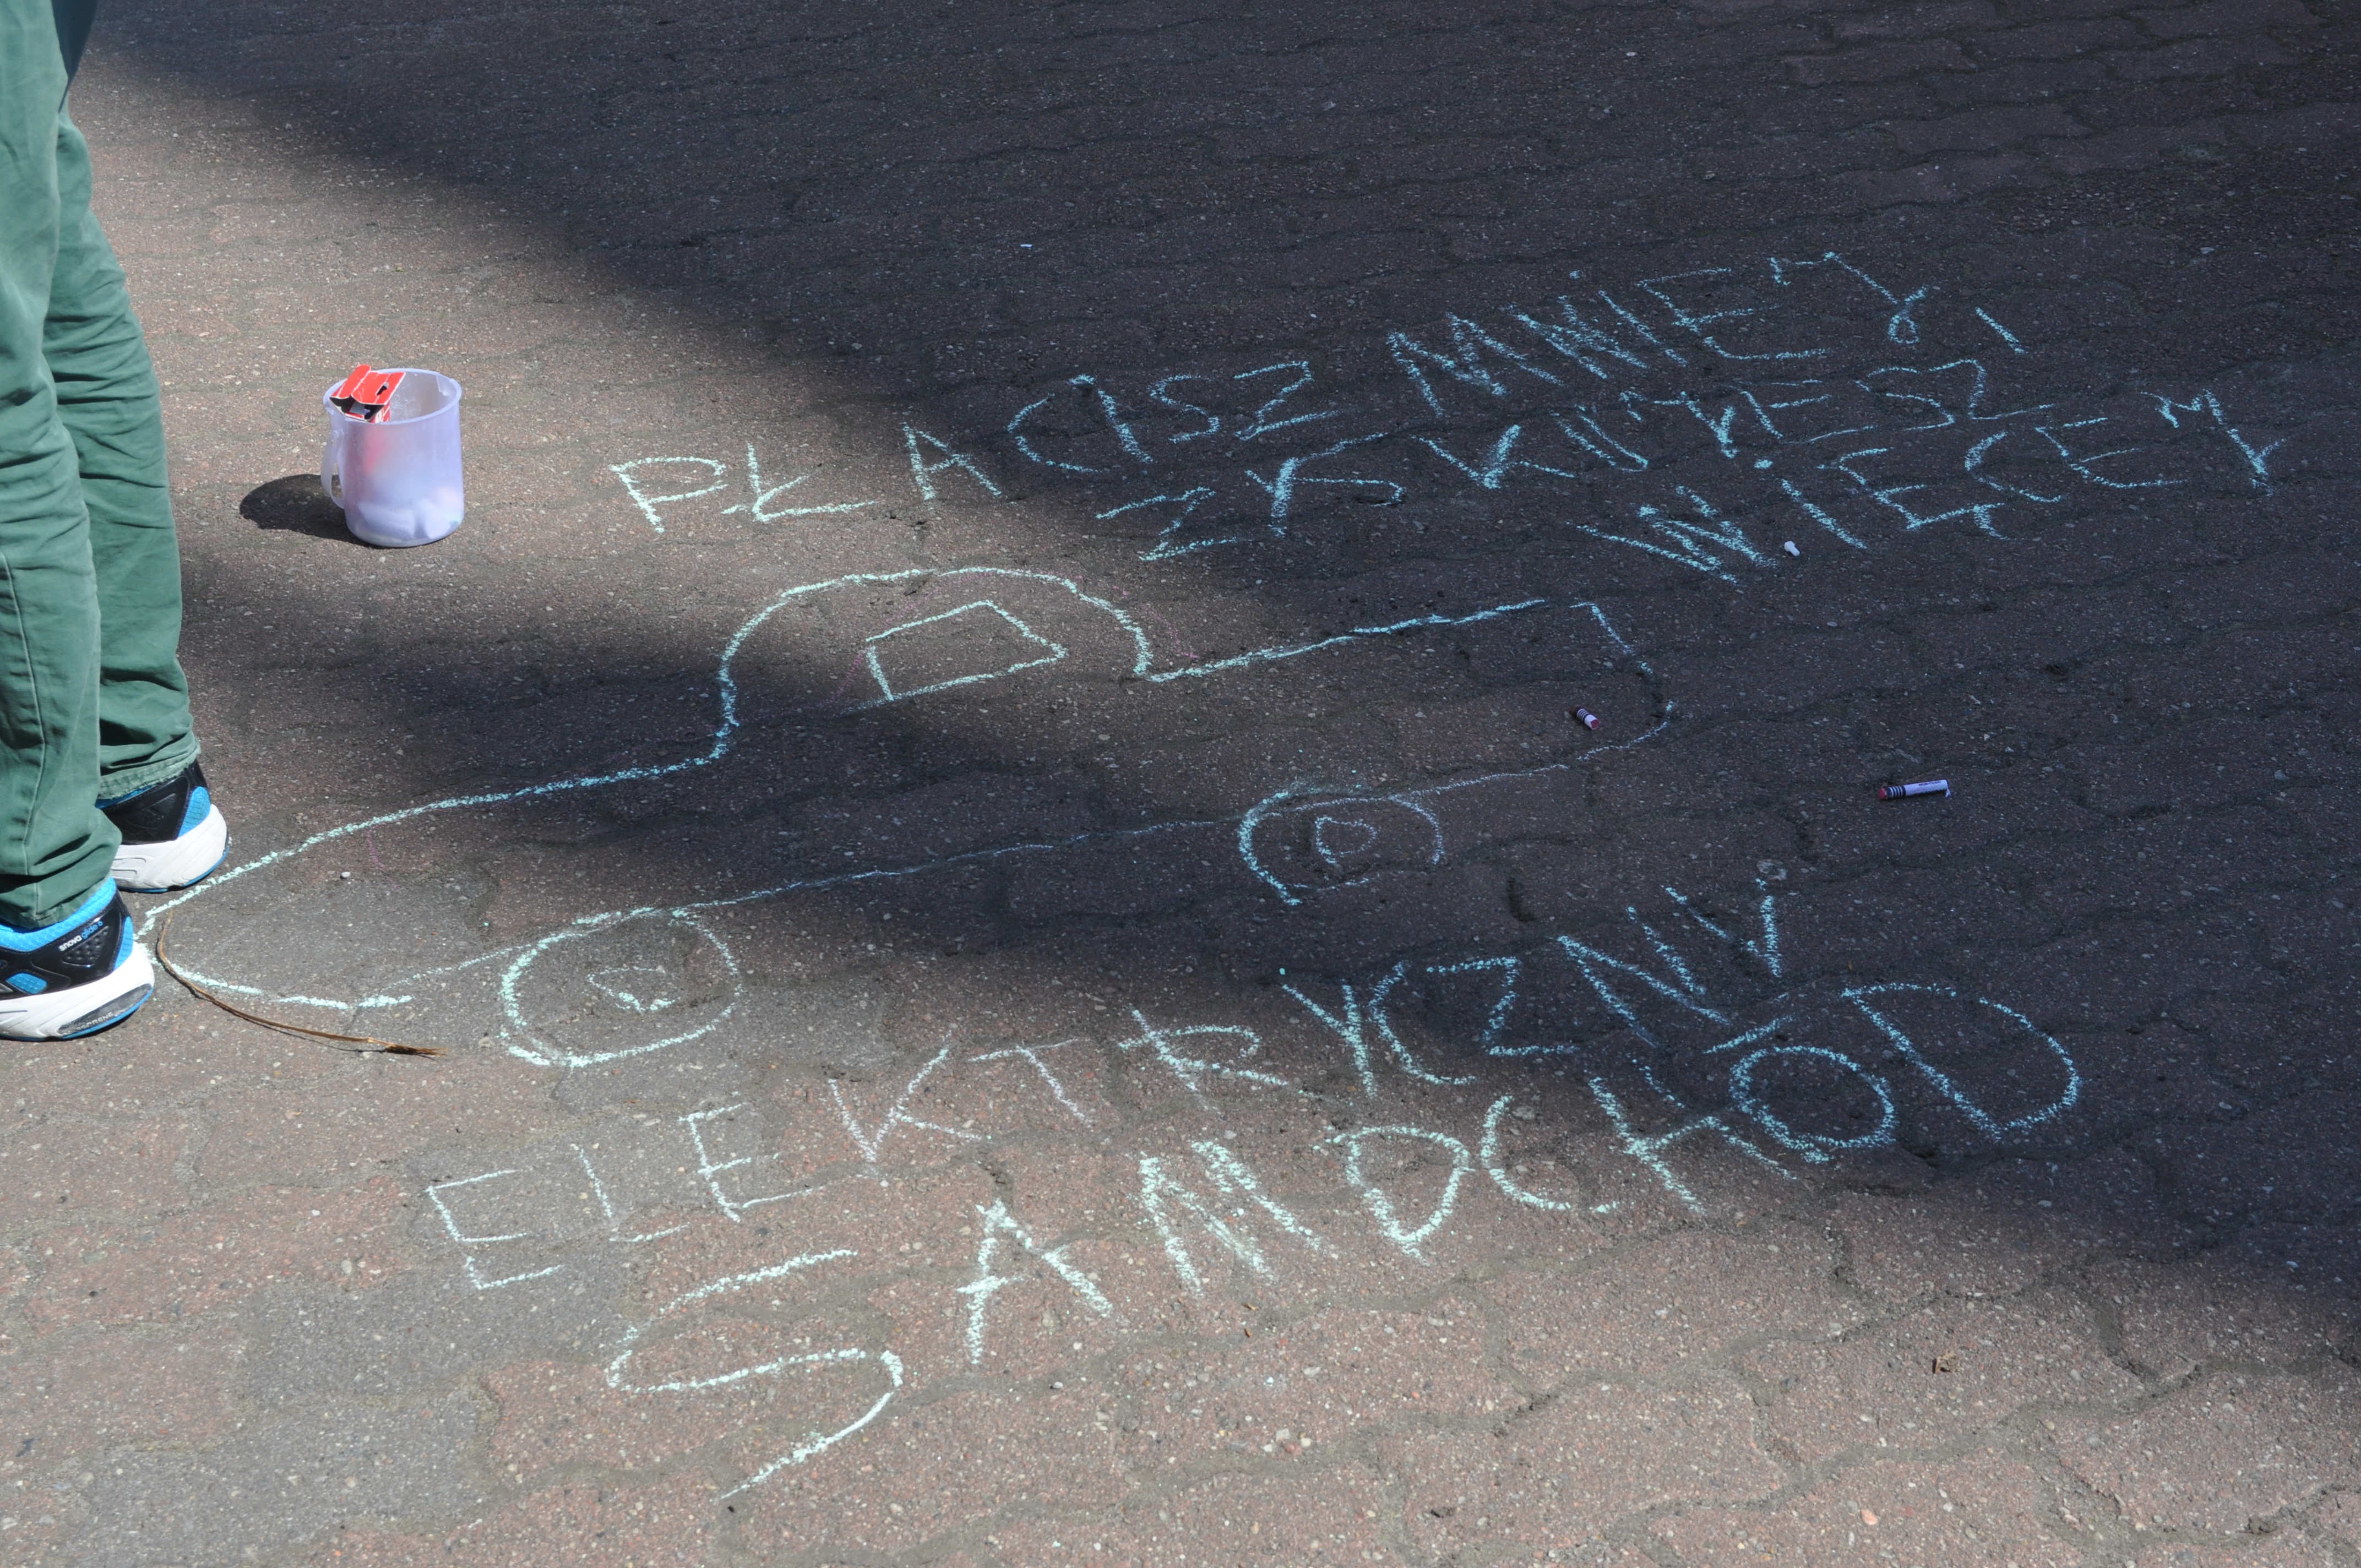 PŁACISZ MNIEJ,
ZYSKUJESZ
WIĘCEJ
ELEKTRYCZNY
SAMOCHÓD